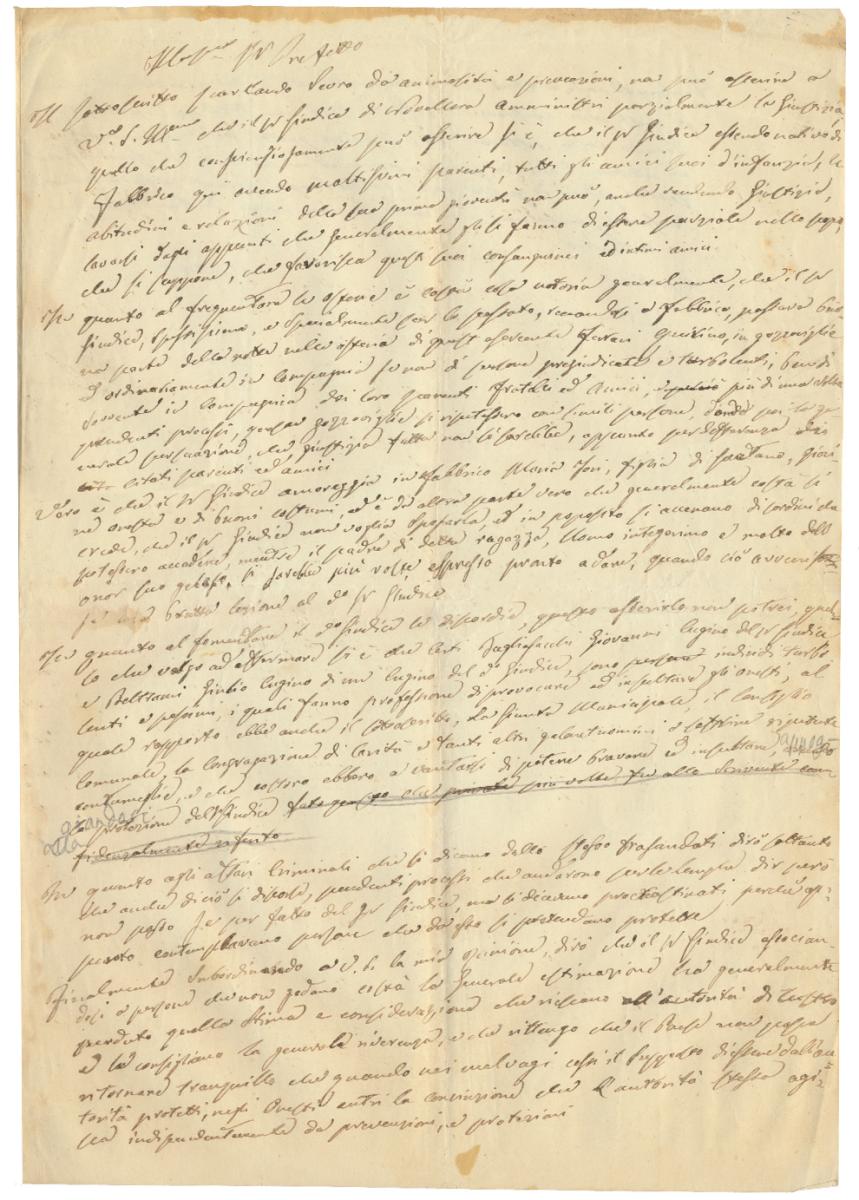 Sr Prefetto
Il sottoscritto parlando scevro da animosità e prevenzioni, non può asserire a
V. S. Ill.ma che il Sr Giudice di Novellara amministri parzialmente la Giustizia
quello che coscienziosamente può asserire si è, che il Sr Giudice essendo nativo di
Fabbrico qui avendo moltissimi parenti, tutti gli amici suoi d'infanzia, le
abitudini e relazioni della sua prima gioventù non può, anche rendendo Giustizia,
lavarsi dagli appunti che generalmente gli si fanno di essere parziale nello
che si suppone, che favorisca questi suoi consanguinei ed intimi amici.
In quanto al frequentare le osterie è costà cosa notoria generalmente, che il Sr
Giudice, spessissimo, e specialmente per lo passato, recandosi a Fabbrico, passava buo-
na parte della notte nelle osterie di quest'esercente Ferrari Quirino, in gozzoviglie
ed ordinariamente in compagnia se non di persone pregiudicate e turbolenti, bensì
sovente in compagnia dei loro parenti fratelli ed amici, più di una volta
pendenti processi, queste gozzoviglie si ripetessero con simili persone, donde poi la ge-
nerale persuasione, che giustizia fatta non si sarebbe, appunto per deferenza dei
citati parenti ed amici
Vero è che il Sr Giudice amoreggia in Fabbrico Maria Tosi, figlia di Gaetano, giova-
ne onesta e di buoni costumi, ed è da altra parte vero che generalmente costà si
crede, che il Sr Giudice non voglia sposarla, ed in proposito si accenano disordini che
potessero accadere, mentre il padre di detta ragazza, uomo integerrimo e molto dell'
onor suo geloso, si sarebbe più volte espresso pronto a dare, quando ciò avvenisse
una brutta lezione al do Sr Giudice
In quanto al fomentare il do Giudice le discordie, questo asserirlo non potrei, quel-
lo che valgo ad affermare si è che certi Tagliasacchi Giovanni cugino del Sr Giudice
e Beltrami Giulio cugino di un cugino del do Giudice, sono individui turbo
lenti e pessimi, i quali fanno professione di provocare ed insultare gli onesti, al
quale rapporto ebbe anche il sottoscritto, la Giunta Municipale, il Consiglio
Comunale, la Congregazione di Carità e tanti altri galantuomini a soffrire ripetute
contumelie, e che costoro ebbero a vantarsi di potere bravare ed insultare,
la protezione del Giudice più volte fu allo scrivente con-
fidenzialmente riferito
In quanto agli affari criminali che si dicono dallo stesso trasandati dirò soltanto
che anche di ciò si discorse, pendenti processi che andarono per le lunghe, dir però
non posso se per fatto del Sr Giudice, ma si dicevano procrastinati, perché ap-
punto contemplavano persone che da esso si pretendano protette
Finalmente subordinando a V. S. la mia opinione, dirò che il Sr Giudice associan-
dosi a persone che non godono costà la generale estimazione ha generalmente
perduto quella stima e considerazione che riescano all'autorità di lustro
e le consigliano la generale riverenza, e che rittengo che il Paese non possa
ritornare tranquillo che quando nei malvagi cessi il supposto di essere dall'au
torità protetti, negli onesti entri la convinzione che l'autorità stessa agi-
sca indipendentemente da prevenzioni, e protezioni